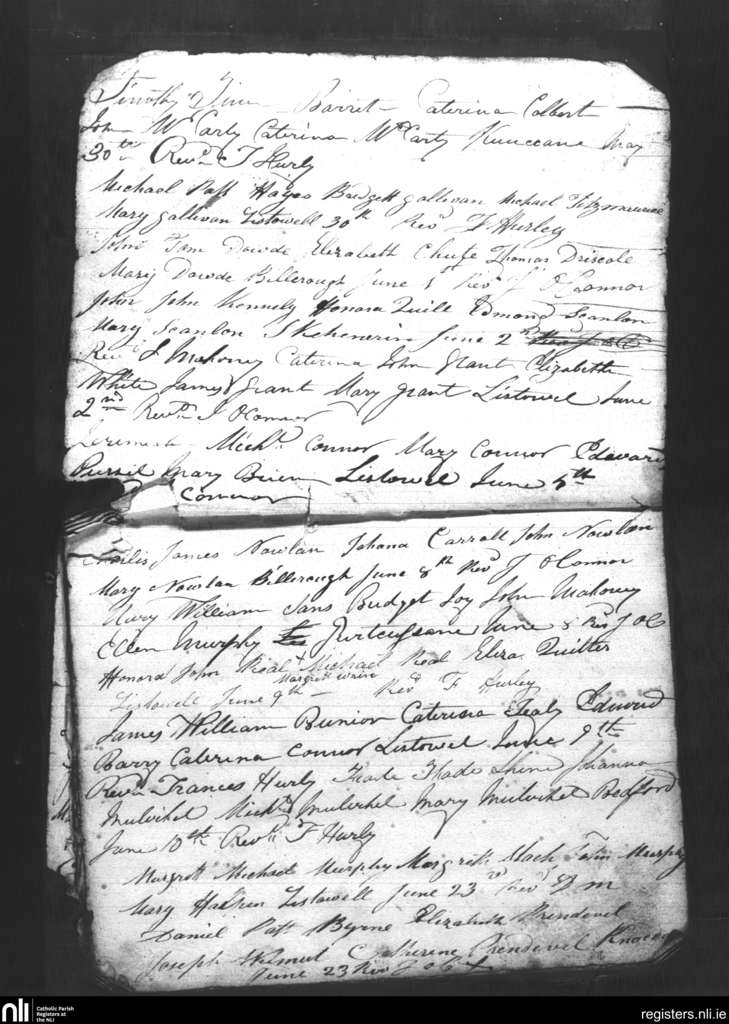 Timothy Barrit Caterina Colbert
John McCarty Caterina McCarty May
30th Revd T Hurly
Michael Patt Hayes Bridgett gallivan Michael Fitzmaurice
Mary gallivan Listowell 30th Revd F Hurley
John Tom Dowde Elizabeth Chute Thomas Driscole
Mary Dowde Billerough June 1 Revd J OConnor
John John Kennely Honora Quill Edmond Scanlon
Mary Scanlon June 2nd
Revd J Mahony Caterina John Grant Elizabeth
White James grant Mary grant Listowel June
2nd Revd J OConnor
Jeremiah Michl Connor Mary Connor Edward
Pursil Mary Brien Listowel June 5th
Connor
James Nowlan Johana Carroll John Nowlan
Mary Nowlan Billerough June 8th Revd J OConnor
William Bridget Joy John Mahony
Ellen Murphy June 8 Revd J OC
Honora John Real Michael Real Eliza Quilter
Margrett
Listowell June 9th Revd F Hurley
James William Bunion Caterina Fealy Edward
Barry Caterina Connor Listowel June 9th
Revd Frances Hurly Thade Shine Johanna
Mulvihel Michl Mulvihel Mary Mulvihel Bedford
June 10th Revd F Hurly
Margrett Michael Murphy Margrett Mach John Murphy
Mary Listowell June 23rd Revd D M
Daniel Patt Byrne Elizabeth Prendevel
Joseph Catherine Prendevel
June 23 Revd J OC
nli
Catholic Parish
Registers at
the NLI
registers.nli.ie